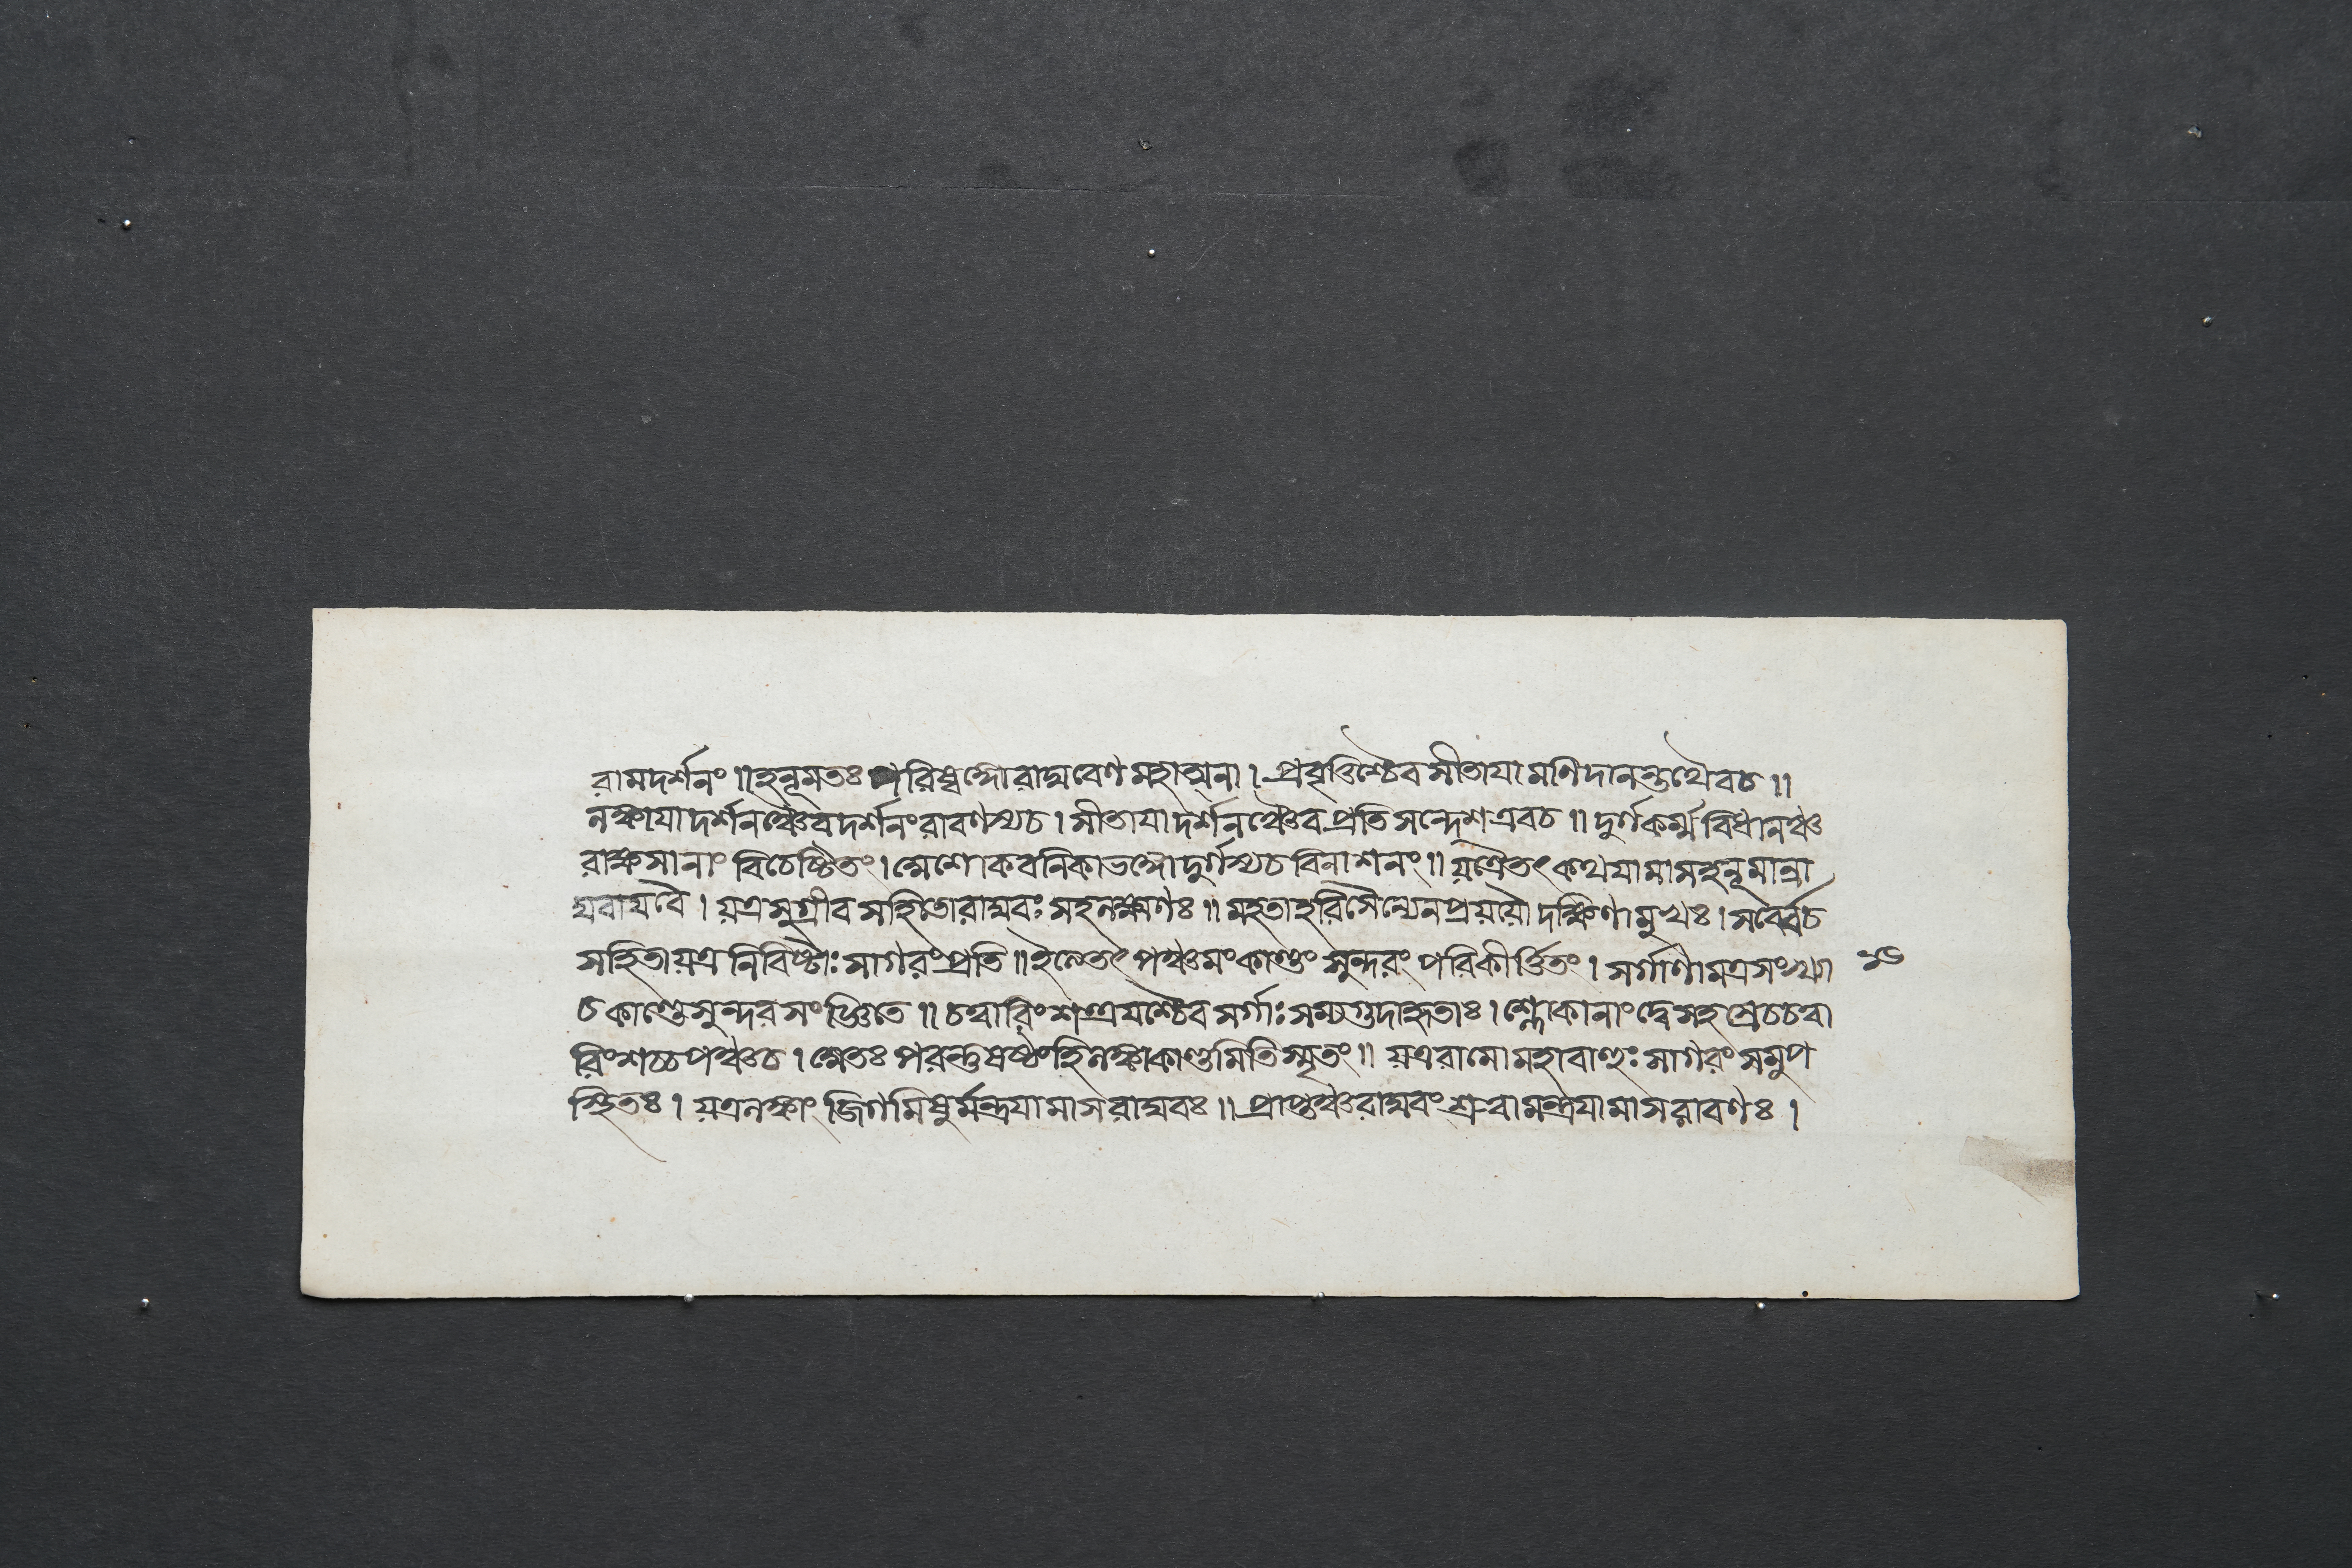 রামদর্শনং ॥ হনূমতঃ পরিষ্বঙ্গো রাঘবেণ মহাত্মনা । প্রবৃত্তিশ্চৈব সীতাযা মণিদানন্তথৈবচ ॥
লঙ্কাযা দর্শনঞ্চৈব দর্শনং রাবণস্যচ । সীতাযা দর্শনঞ্চৈব প্রতিসন্দেশ এবচ ॥ দুর্গকর্ম্ম বিধানঞ্চ
রাক্ষসানাং বিচেষ্টিতং । অশোকবনিকাভঙ্গো দুর্গস্যচ বিনাশনং ॥ য়ত্রৈতৎ কথযামাস হনূমান্রা
ঘবাযবৈ । য়ত্র সুগ্রীব সহিতো রাঘবঃ সহলক্ষ্মণঃ ॥ মহতা হরিসৈন্যেন প্রয়য়ৌ দক্ষিণামুখঃ । সর্ব্বেচ
সহিতা য়ত্র নিবিষ্টাঃ সাগরং প্রতি ॥ ইত্যেতৎ পঞ্চমং কাণ্ডং সুন্দরং পরিকীর্ত্তিতং । সর্গাণামত্র সংখ্যা
চ কাণ্ডে সুন্দর সংজ্ঞিতে ॥ চত্বারিংশত্ত্রযশ্চৈব সর্গাঃ সম্যগুদাহৃতাঃ । শ্লোকানাং দ্বে সহস্রেচ চত্বা
রিংশচ্চ পঞ্চচ । অতঃ পরন্তু ষষ্ঠং হি লঙ্কাকাণ্ডমিতি স্মৃতং ॥ য়ত্র রামো মহাবাহুঃ সাগরং সমুপ
স্থিতঃ । য়ত্র লঙ্কাং জিগমিষুর্মন্ত্রযামাস রাঘবঃ ॥ প্রাপ্তঞ্চ রাঘবং শ্রুত্বা মন্ত্রযামাস রাবণঃ ।